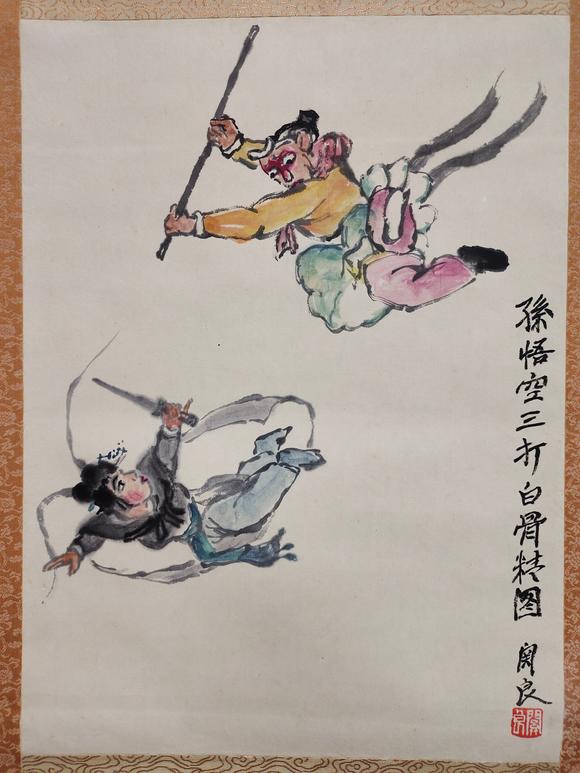 孫悟空三打白骨精图
関良
關良